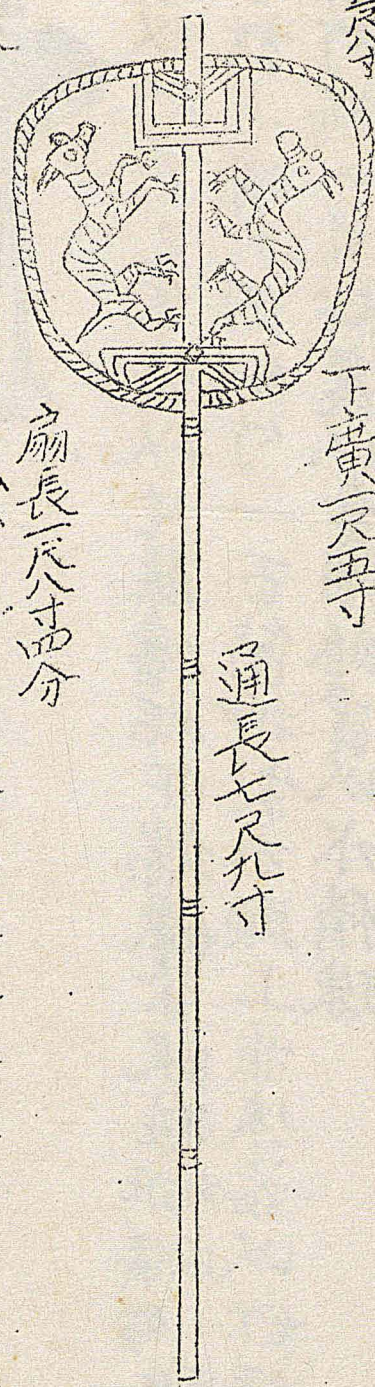 尺八寸
下廣一尺五寸
通長七尺九寸
扇長一尺八寸四分